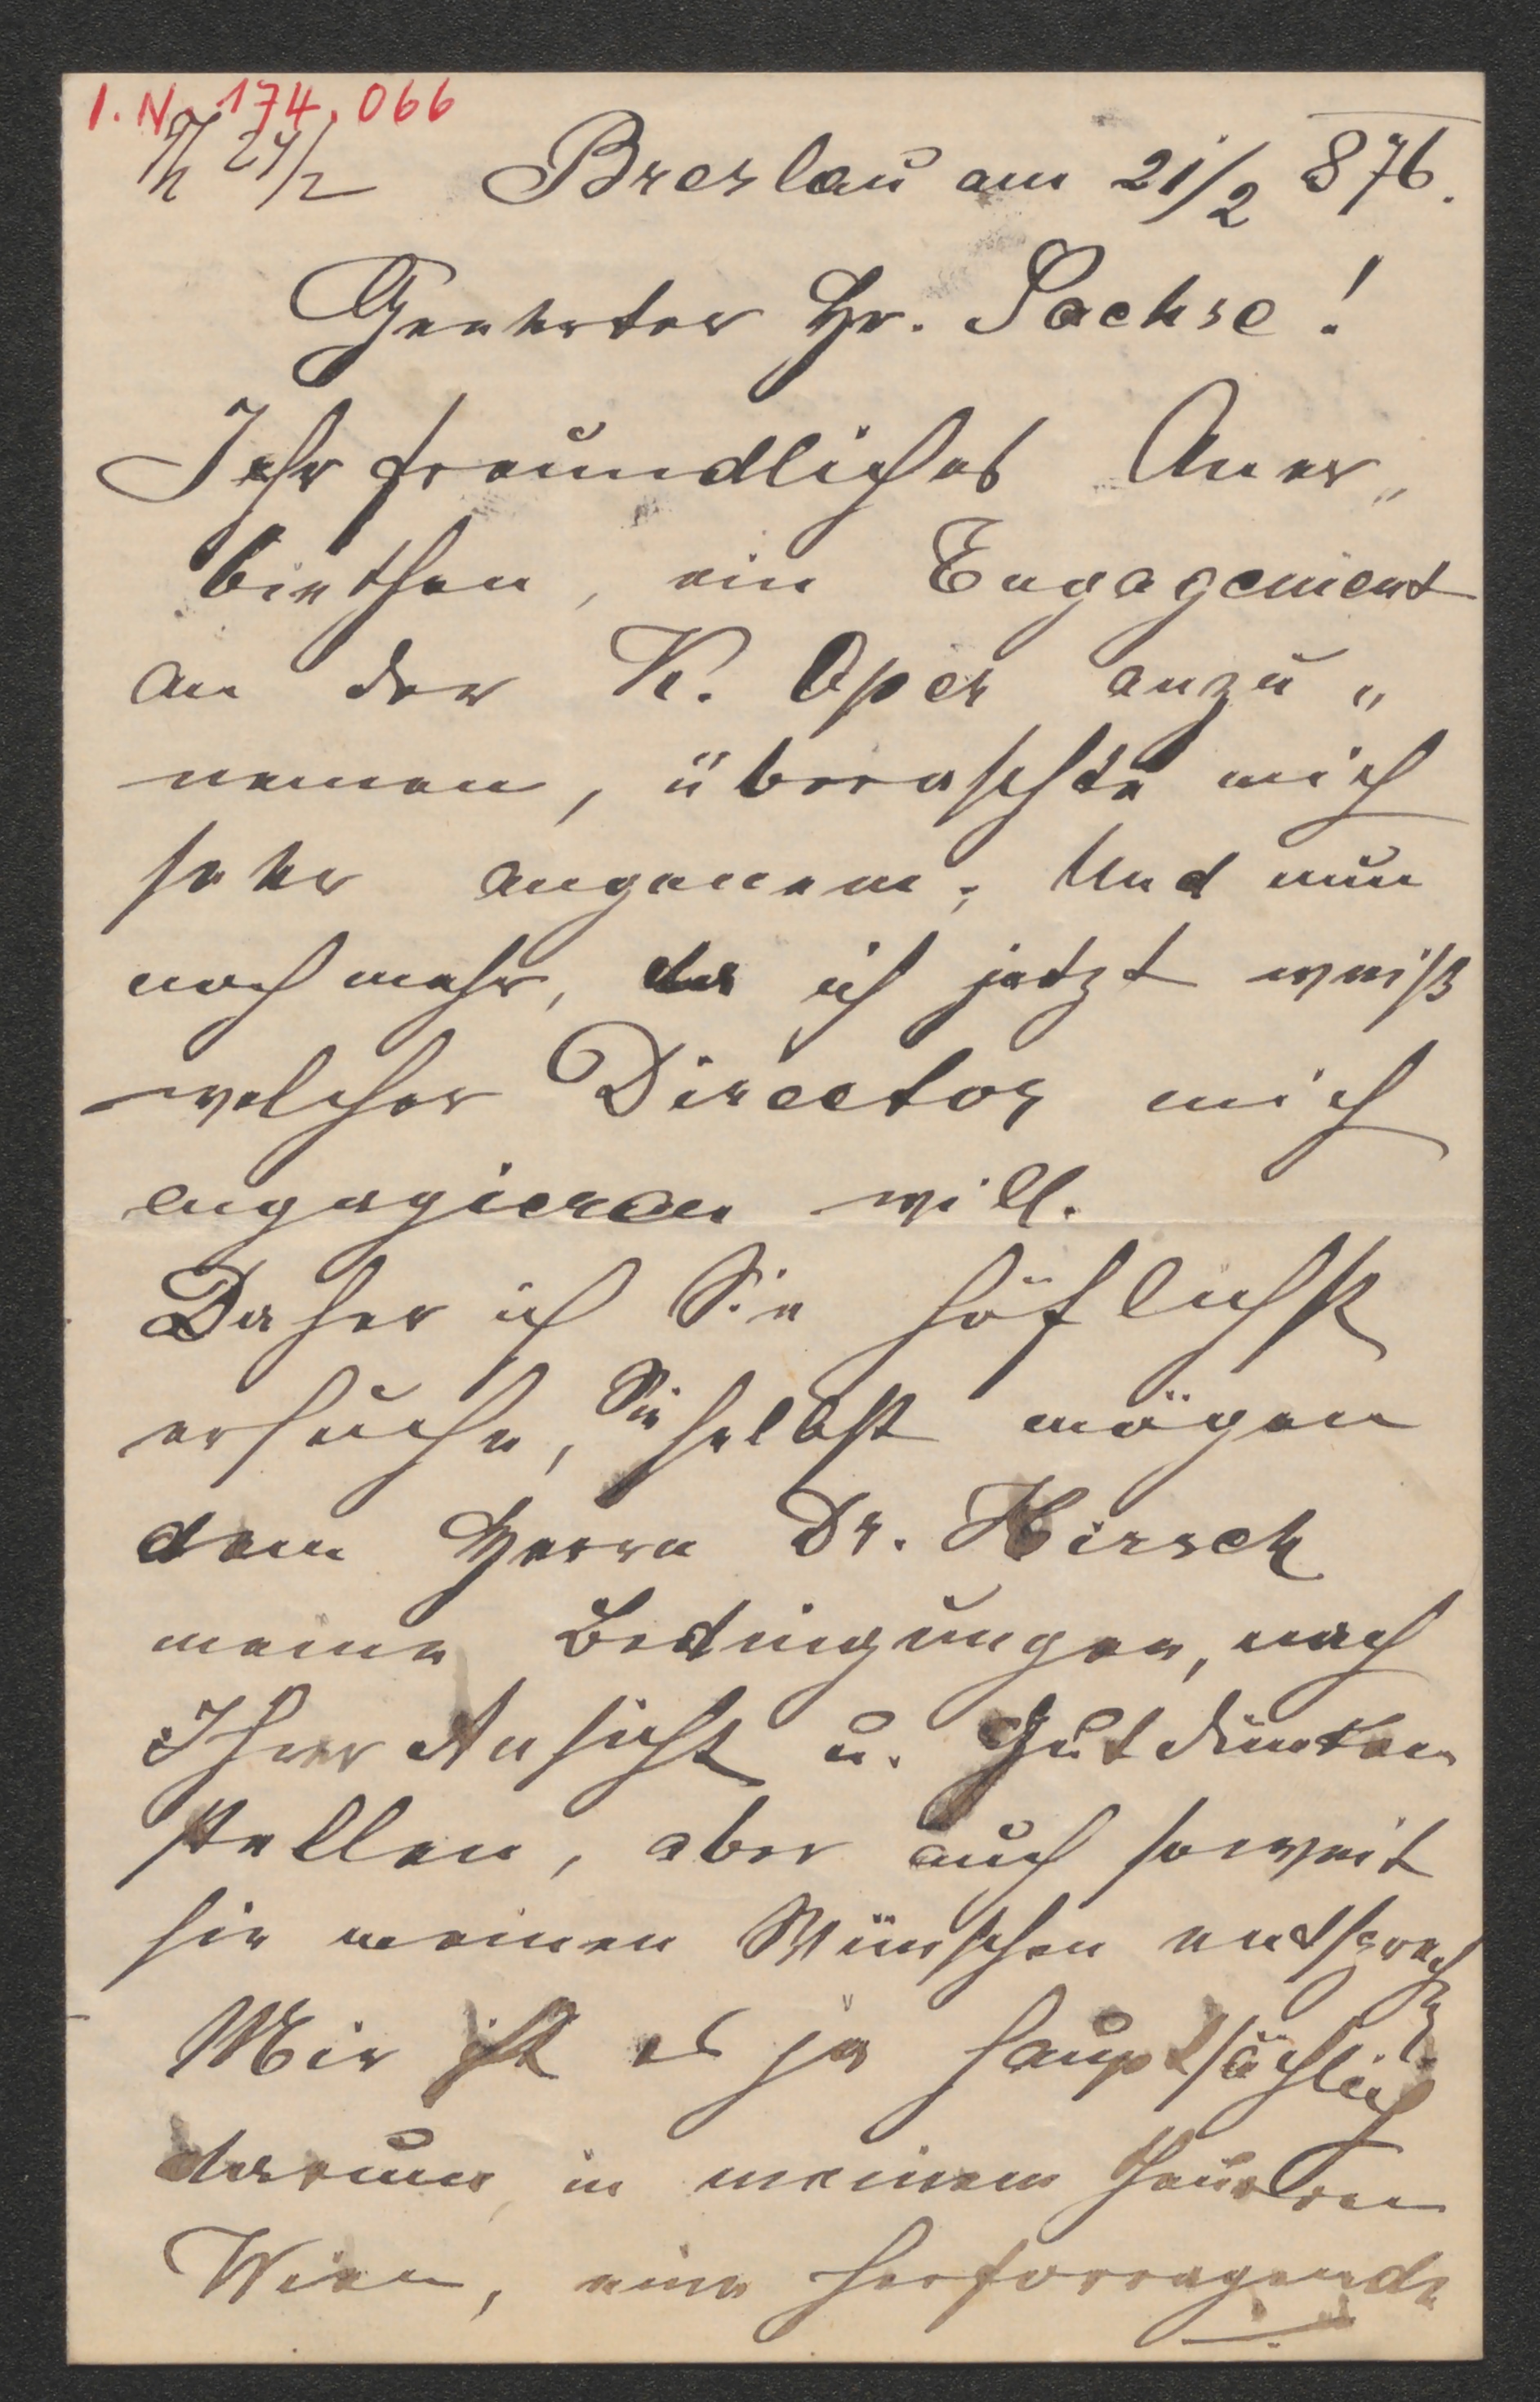 I.N. 174.066
24/2 Breslau am 21/2 876.
Geehrter Hr. Sachse!
Ihr freundliches Aner„
biethen, ein Engagement
an der K. Oper anzu„
nemen, überraschte mich
sehr angenem; Und nun
noch mehr, da ich jetzt weiß
welcher Director mich
engagieren will.
Daher ich Sie höflichst
ersuche, Sie selbst mögen
dem Herrn Dr. Hirsch
meine Bedingungen, nach
Ihrer Ansicht u. Gutdünken
stellen, aber auch soweit
sie meinen Wünschen endsprech
Mir ist es ja hauptsächlich
darum, in meinem
Wien, eine herforragende